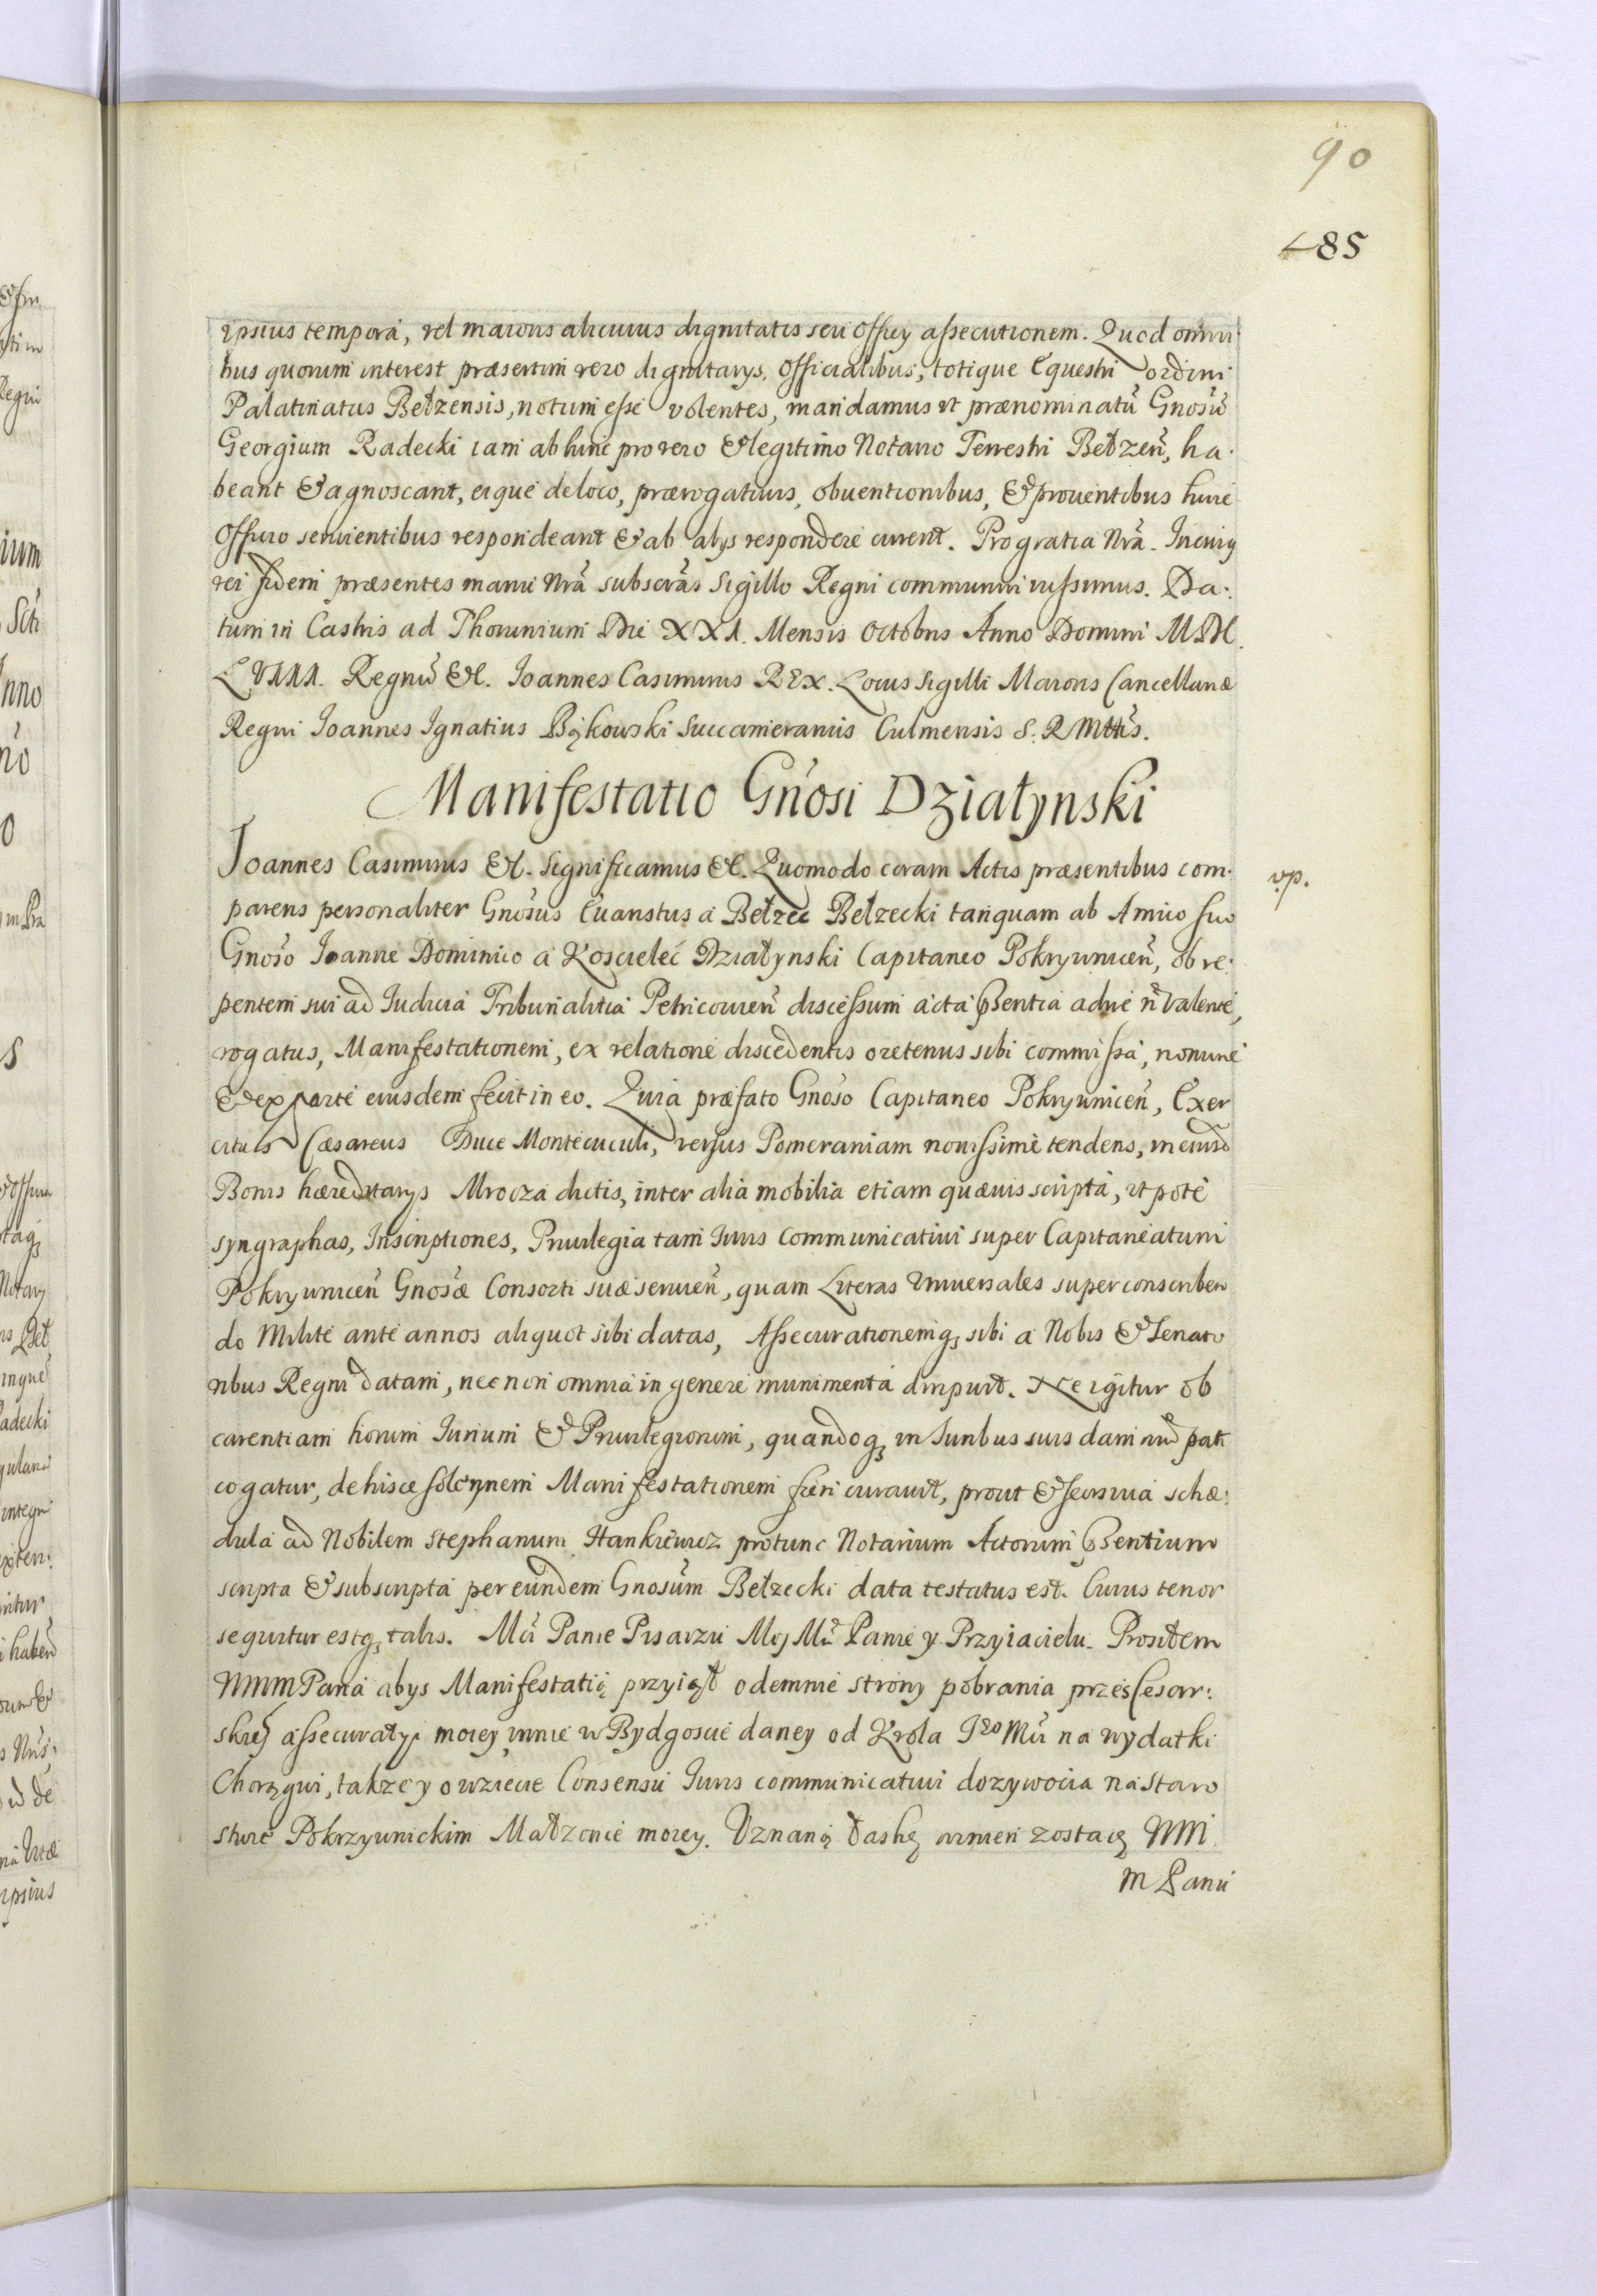 90
485
ipsius tempora, vel maioris alicuius dignitatis seu Officy assecutionem. Quod omni-
bus quorum interest præsertim vero dignitarys, Officialibus, totique Equestri ordini
Palatinatus Bełzensis, notum esse volentes, mandamus ut prænominatū Gnosū
Georgium Radecki iam ab hinc pro vero & legitimo Notario Terrestri Bełzen̄, ha-
beant & agnoscant, eique de loco, prærogativis, obuentionibus, & prouentibus huic
Officio seruientibus respondeant & ab alys responderi curent. Pro gratia Nrā. In cuiq
rei fidem præsentes manu Nrā subscrās Sigillo Regni communiri iussimus. Da-
tum in Castris ad Thorunium Die XXI. Mensis Octobris Anno Domini MDC
LVIII. Regnū &c. Ioannes Casimirus REX. Locus Sigilli Maioris Cancellariæ
Regni Ioannes Ignatius Bąkowski Succamerarius Culmensis S. R Mttis.
Manifestatio Gn̄osi Działynski
Ioannes Casimirus &c. Significamus &c. Quomodo coram Actis præsentibus com-
parens personaliter Gnosus Euaristus a Bełzec Bełzecki tanquam ab Amico suo
Gnoso Ioanne Dominico a Koscielec Działynski Capitaneo Pokrzyunicen̄, ob re-
pentem sui ad Iudicia Tribunalitia Petricouien̄ discessum acta p̄sentia adire n̄ valente,
rogatus, Manifestationem, ex relatione discedentis oretenus sibi commissa, nomine
& ex parte eiusdem fecit in eo. Quia præfato Gnoso Capitaneo Pokrzyunicen̄, Exer
citus Cæsareus Duce Montecuculi, versus Pomeraniam nouissime tendens, in eiusd
Bonis hæreditarys Mrocza dictis, inter alia mobilia etiam quæuis scripta, ut pote
syngraphas, Inscriptiones, Priuilegia tam Iuris Communicatiui super Capitaneatum
Pokrzyunicen̄ Gnosæ Consorti suæ seruien̄, quam Literas Vniuersales super conscriben
do Milite ante annos aliquot sibi datas, Assecurationemq sibi a Nobis & Senato
ribus Regni datam, nec non omnia in genere munimenta diripuit. Ne igitur ob
carentiam horum Iurium & Priuilegiorum, quandoq in Iuribus suis damnū pati
cogatur, de hisce solennem Manifestationem fieri curauit, prout & seorsiua schæ-
dula ad Nobilem Stephanum Hankiewicz protunc Notarium Actorum p̄sentium
scripta & subscripta per eundem Gnosum Bełzecki data testatus est. Cuius tenor
sequitur estq talis. Mci Panie Pisarzu Moj Mci Panie y Przyiacielu. Prosiłem
WMM Pana abys Manifestatią przyiął odemnie strony pobrania przes Cesar-
skie assecuratyi moiey mnie w Bydgosci daney od Krola Jeo Mci na wydatki
Chorągwi, także y o wziecie Consensu Iuris communicatiui dozywocia na Staro
stwie Pokrzyunickim Małzonce moiey. Vznaną łaskę winien zostaię WM
M Panu
vp.